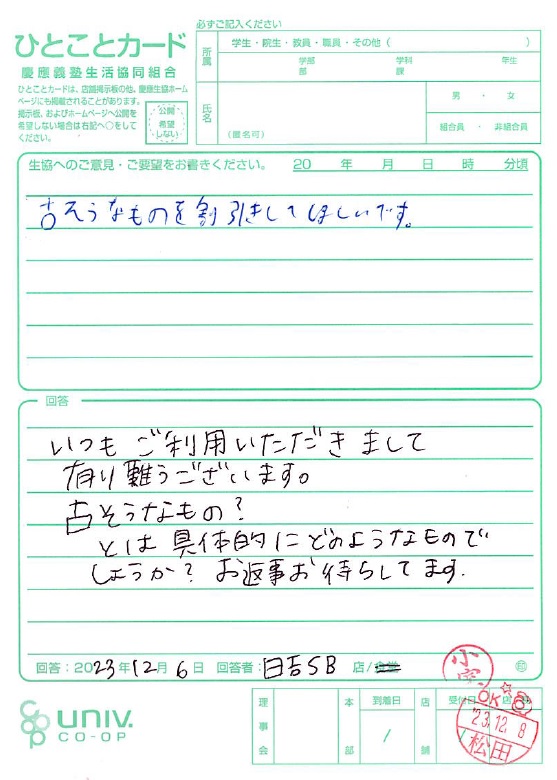 必ずご記入ください
ひとことカード
慶應義塾生活協同組合
ひとことカードは、店舗掲示板の他、慶應生協ホーム
ページにも掲載されることがあります。
掲示板、およびホームページへ公開を
希望しない場合は右記へ○をして
ください。
公開
希望
しない
所属
学生・院生・教員・職員・その他( )
学部 学科 年生
部 課
氏名
(匿名可)
男 ・ 女
組合員 ・ 非組合員
生協へのご意見・ご要望をお書きください。 20 年 月 日 時 分頃
古そうなものを割引きしてほしいです。
回答
いつもご利用いただきまして
有り難うございます。
古そうなもの?
とは具体的にどのようなもので
しょうか? お返事お待ちしてます.
回答:2023年12月6日 回答者:日吉SB 店/食堂
UNIV.
CO-OP
理事会
本部
到着日
/
店舗
受付日
/
OK
'23.12.8
松田